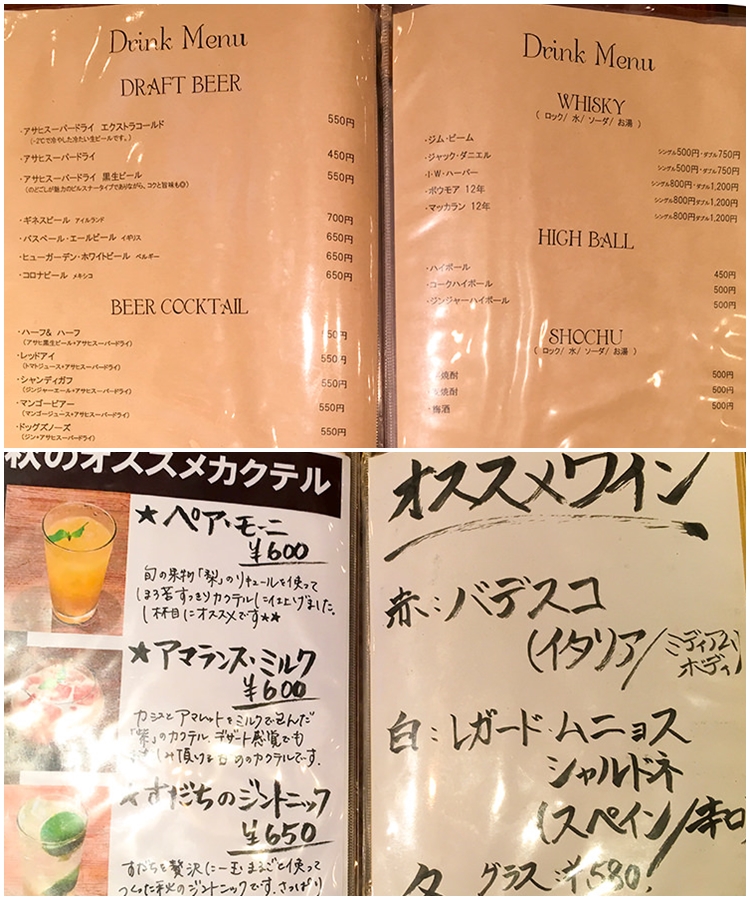 Drink Menu
DRAFT BEER
・アサヒスーパードライ エクストラコールド 550円
(-2℃で冷やした冷たい生ビールです。)
・アサヒスーパードライ 450円
・アサヒスーパードライ 黒生ビール 550円
(のどごしが魅力のピルスナータイプでありながら、コクと旨味も◎)
・ギネスビール アイルランド 700円
・バスペール・エールビール イギリス 650円
・ヒューガーデン・ホワイトビール ベルギー 650円
・コロナビール メキシコ 650円
BEER COCKTAIL
・ハーフ& ハーフ 50円
(アサヒ黒生ビール+アサヒスーパードライ)
・レッドアイ 550円
(トマトジュース+アサヒスーパードライ)
・シャンディガフ 550円
(ジンジャーエール+アサヒスーパードライ)
・マンゴービアー 550円
(マンゴージュース+アサヒスーパードライ)
・ドッグズノーズ 550円
(ジン+アサヒスーパードライ)
Drink Menu
WHISKY
( ロック/ 水/ ソーダ/ お湯 )
・ジム・ビーム シングル500円・ダブル750円
・ジャック・ダニエル シングル500円・ダブル750円
・I・W・ハーパー シングル800円・ダブル1,200円
・ボウモア 12年 シングル800円・ダブル1,200円
・マッカラン 12年 シングル800円ダブル1,200円
HIGH BALL
・ハイボール 450円
・コークハイボール 500円
・ジンジャーハイボール 500円
SHOCHU
( ロック/ 水/ ソーダ/ お湯 )
焼酎 500円
焼酎 500円
・梅酒 500円
秋のオススメカクテル
★ペア・モーニ
¥600
旬の果物「梨」のリキュールを使って
ほろ苦すっきりカクテルに仕上げました。
1杯目にオススメです★★
★アマランス・ミルク
¥600
カシスとアマレットをミルクで包んだ
「紫」のカクテル。デザート感覚でも
しみ頂けるカクテルです。
★すだちのジントニック
¥650
すだちを贅沢に一玉まるごと使って
つくった秋のジントニックです。さっぱり
オススメワイン
赤:バデスコ
(イタリア/ミディアム
ボディ)
白:レガード・ムニョス
シャルドネ
(スペイン/辛口
グラス:¥580!